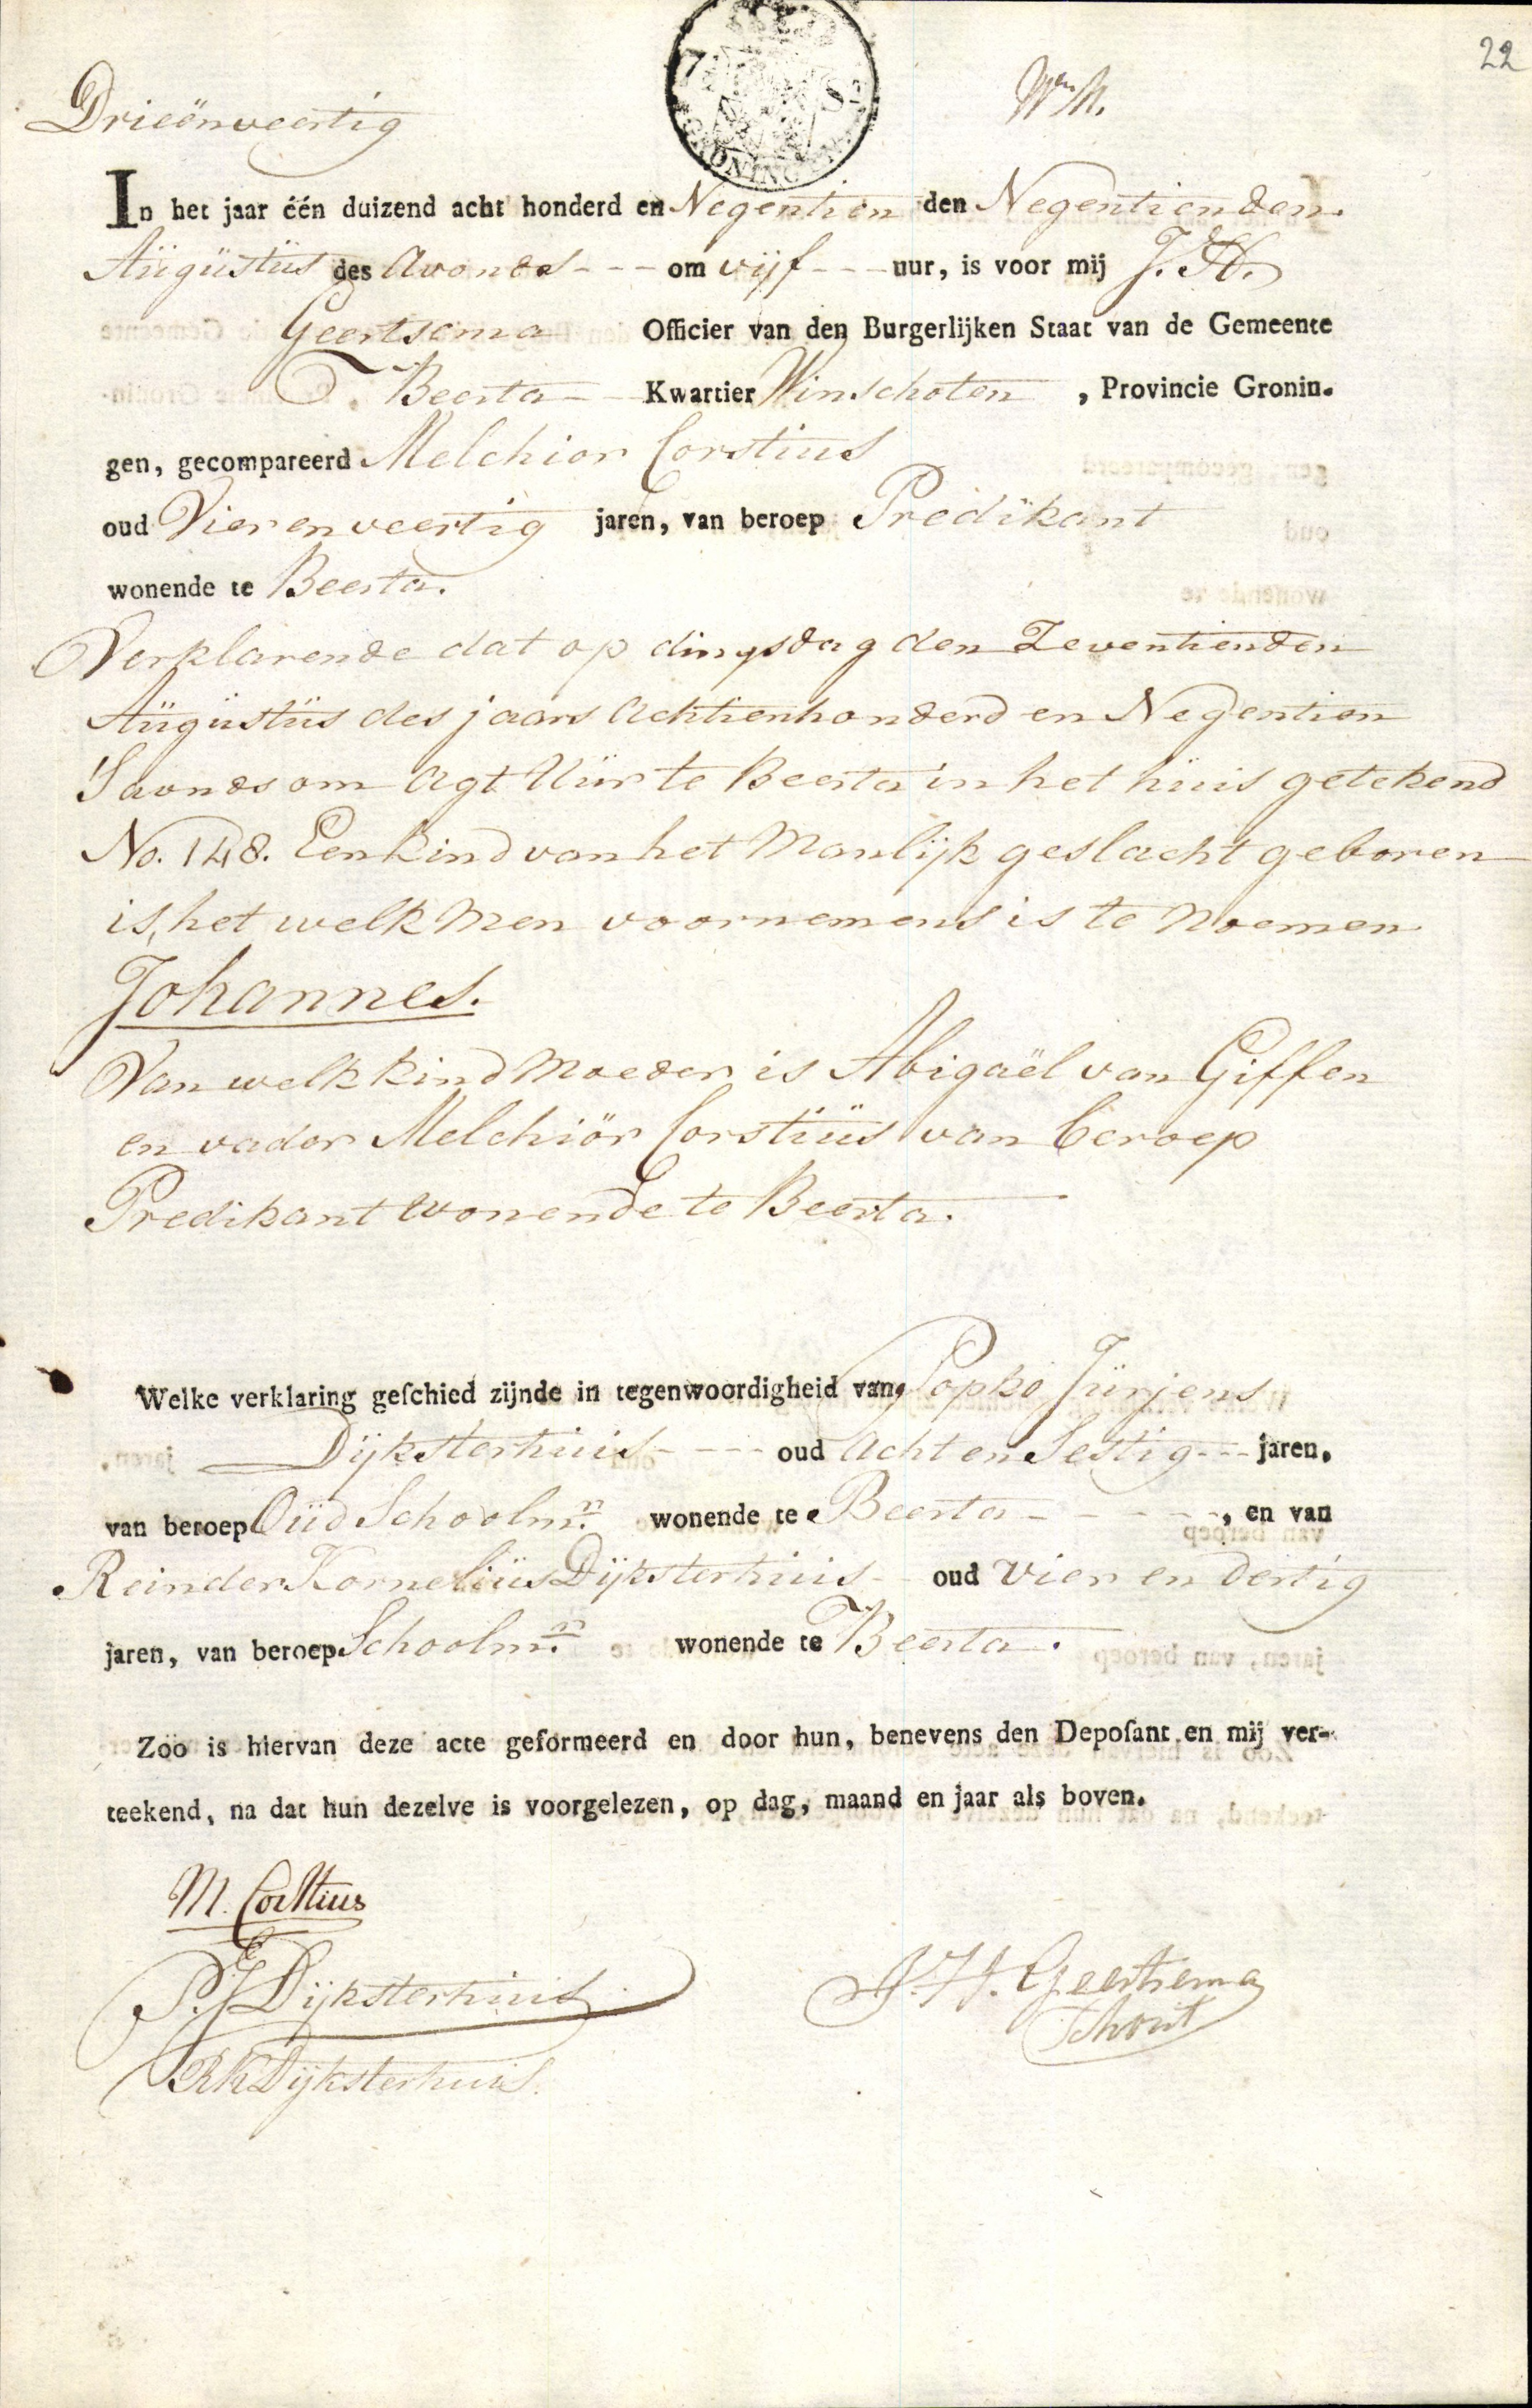 22
Drieënveertig
GRONINGEN
In het jaar één duizend acht honderd en Negentien den Negentienden
Aügüstüs des Avonds - - - om vijf - - - uur, is voor mij J. H.
Geertsema Officier van den Burgerlijken Staat van de Gemeente
Beerta Kwartier Winschoten , Provincie Gronin-
gen, gecompareerd Melchior Corstius
oud Vierenveertig jaren, van beroep Predikant
wonende te Beerta.
Verklarende dat op dingsdag den Zeventienden
Aügüstüs des jaars Achtienhonderd en Negentien
'Savonds om Agt Uür te Beerta in het hüis getekend
No. 148. Een kind van het Manlijk geslacht geboren
is, het welk Men voornemens is te Noemen
Johannes.
Van welk kind Moeder is Abigaël van Giffen
en vader Melchiör Corstiüs van beroep
Predikant Wonende te Beerta.
Welke verklaring geſchied zijnde in tegenwoordigheid van Popko Jürjens
Dijksterhuis - - - oud Acht en Sestig - - jaren,
van beroep Oüd Schoolmr. wonende te Beerta - - - - -, en van
Reinder Korneliüs Dijksterhüis oud vier en dertig
jaren, van beroep Schoolmr. wonende te Beerta.
Zoo is hiervan deze acte geformeerd en door hun, benevens den Depoſant en mij ver-
teekend, na dat hun dezelve is voorgelezen, op dag, maand en jaar als boven.
M. Corstius
P. J. Dijksterhuis
J. H. Geertsema
Schout
R K Dijksterhuis.